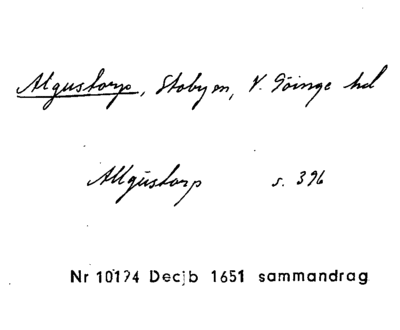 Algustorp, Stoby sn, V. Göinge hd
Allgustorp s. 396
Nr 10174 Decjb 1651 sammandrag